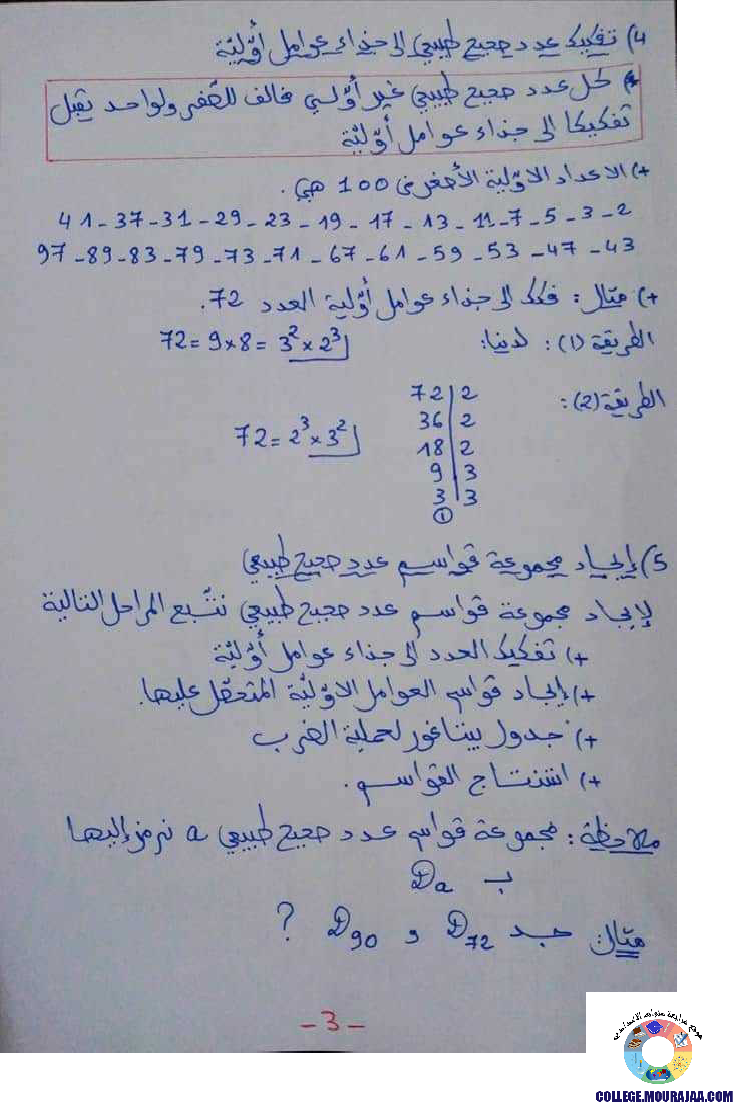 4) تفكيك عدد صحيح طبيعي إلى جذاء عوامل أوّليّة
+) كل عدد صحيح طبيعي غير أوّلي مخالف للصّفر ولواحد يقبل
تفكيكا إلى جذاء عوامل أوّليّة
+) الاعداد الاوّلية الأصغر من 100 هي.
2 - 3 - 5 - 7 - 11 - 13 - 17 - 19 - 23 - 29 - 31 - 37 - 41
43 - 47 - 53 - 59 - 61 - 67 - 71 - 73 - 79 - 83 - 89 - 97
+) مثال: فكك إلى جذاء عوامل أوّلية العدد 72.
الطريقة (1): لدينا: 72 = 9 × 8 = 3² × 2³
الطريقة (2):
72 | 2
36 | 2
18 | 2
9 | 3
3 | 3
1
72 = 2³ × 3²
5) إيجاد مجموعة قواسم عدد صحيح طبيعي
لإيجاد مجموعة قواسم عدد صحيح طبيعي نتّبع المراحل التالية
+) تفكيك العدد إلى جذاء عوامل أوّليّة
+) إيجاد قواسم العوامل الاوّليّة المتحصّل عليها.
+) جدول بيتاغور لعملية الضرب
+) استنتاج القواسم.
ملاحظة: مجموعة قواسم عدد صحيح طبيعي a نرمز إليها
بـ Da
مثال: جد D72 و D90 ?
- 3 -
موقع مراجعة
COLLEGE.MOURAJAA.COM